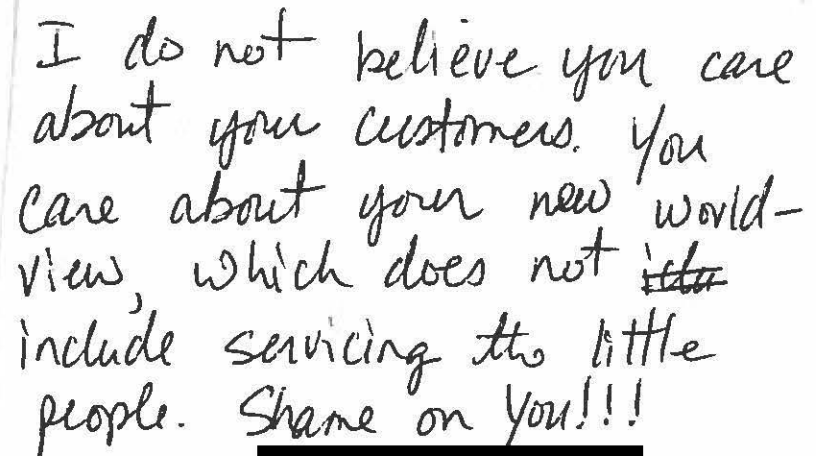 I do not believe you care
about your customers. You
care about your new world-
view, which does not
include servicing the little
people. Shame on You!!!